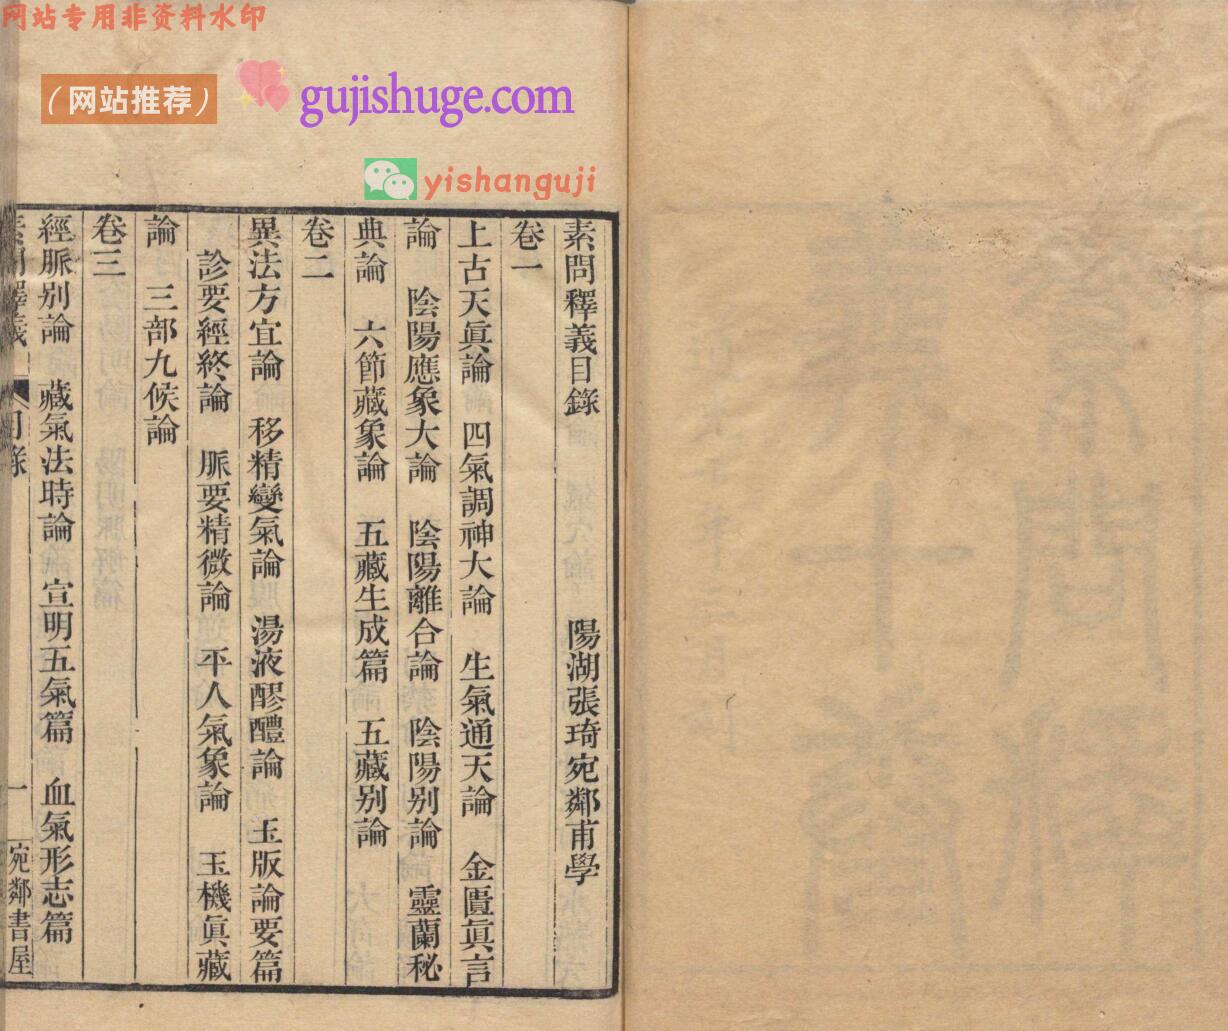 网站专用非资料水印
（网站推荐）
gujishuge.com
yishanguji
素問釋義目錄 陽湖張琦宛鄰甫學
卷一
上古天眞論 四氣調神大論 生氣通天論 金匱眞言
論 陰陽應象大論 陰陽離合論 陰陽别論 靈蘭秘
典論 六節藏象論 五藏生成篇 五藏别論
卷二
異法方宜論 移精變氣論 湯液醪醴論 玉版論要篇
診要經終論 脈要精微論 平人氣象論 玉機眞藏
論 三部九候論
卷三
經脈别論 藏氣法時論 宣明五氣篇 血氣形志篇
素問釋義 目錄 一 宛鄰書屋